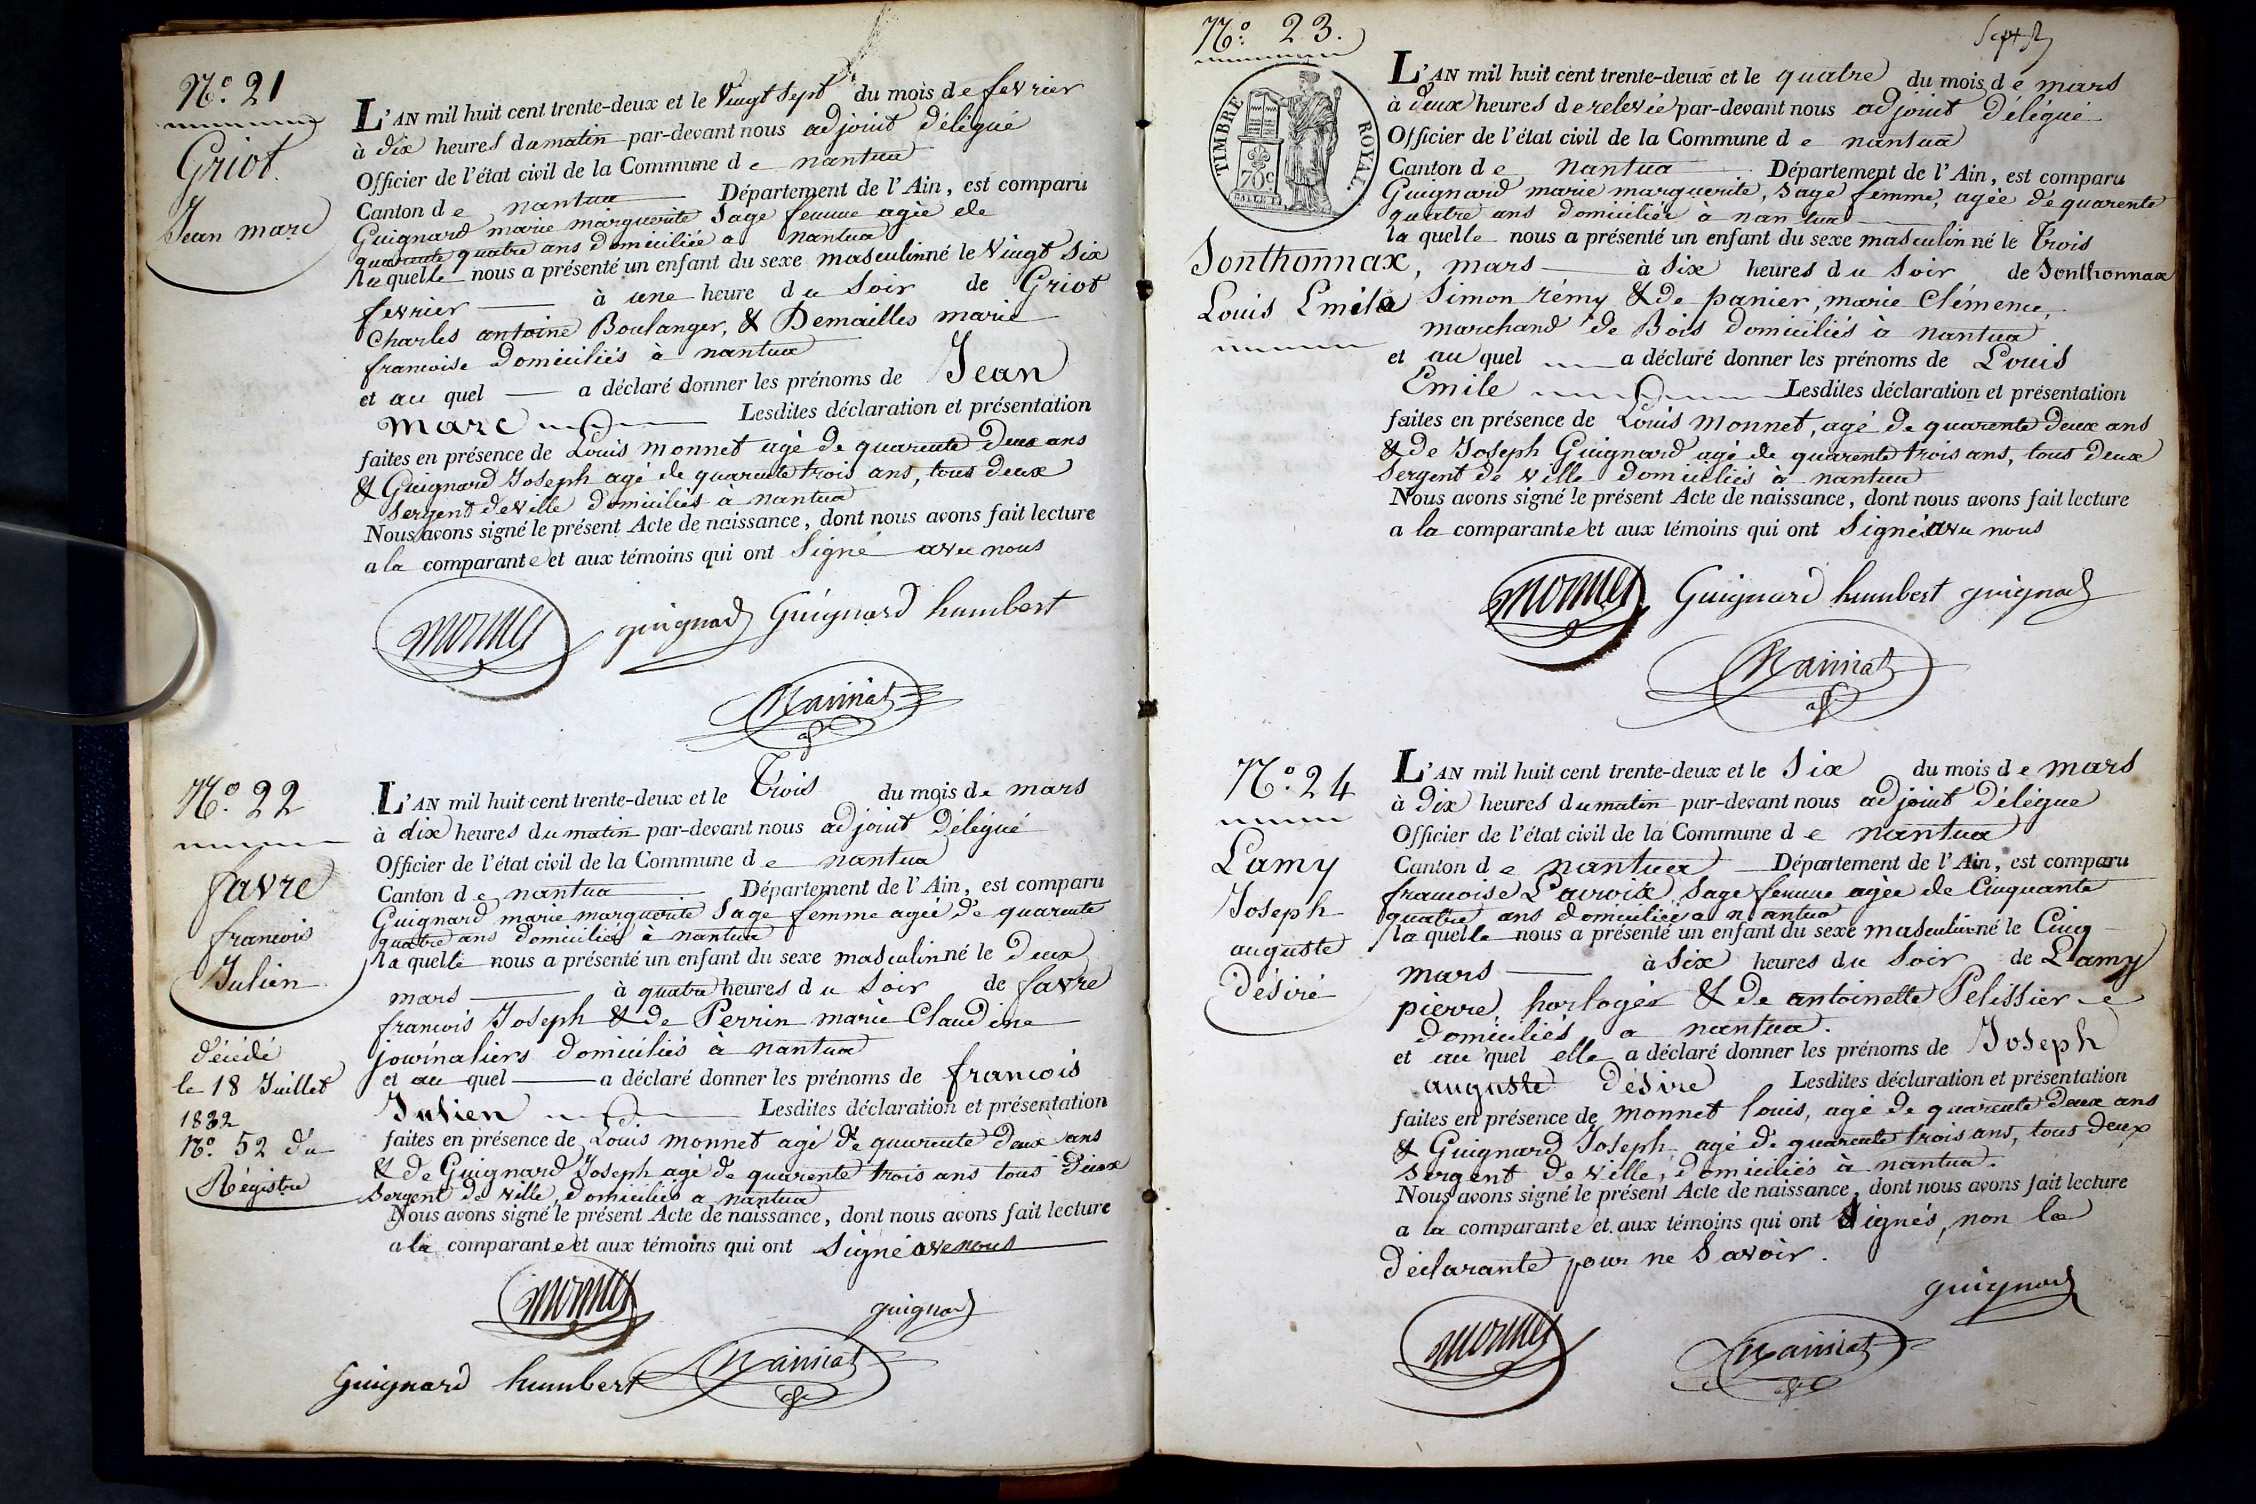 N.º 21
Griot
Jean marc
L'AN mil huit cent trente-deux et le Vingt Sept du mois de fevrier
à dix heures du matin par-devant nous adjoint délégué
Officier de l'état civil de la Commune de nantua
Canton de nantua Département de l'Ain, est comparu
Guignard marie marguerite Sage femme agée de
quarente quatre ans domiciliée a nantua
la quelle nous a présenté un enfant du sexe masculin né le Vingt Six
fevrier à une heure du Soir de Griot
Charles antoine Boulanger, & Demailles marie
francoise Domiciliés à nantua
et au quel a déclaré donner les prénoms de Jean
marc Lesdites déclaration et présentation
faites en présence de Louis monnet agé de quarente deux ans
& Guignard Joseph agé de quarente trois ans, tous deux
Sergent de ville domiciliés à nantua
Nous avons signé le présent Acte de naissance, dont nous avons fait lecture
a la comparante et aux témoins qui ont Signé avec nous
monnet guignard Guignard humbert
N.º 22
favre
francois
Julien
décédé
le 18 Juillet
1832
N.º 52 du
Régistre
L'AN mil huit cent trente-deux et le Trois du mois de mars
à dix heures du matin par-devant nous adjoint délégué
Officier de l'état civil de la Commune de nantua
Canton de nantua Département de l'Ain, est comparu
Guignard marie marguerite Sage femme agée de quarente
quatre ans domiciliée à nantua
la quelle nous a présenté un enfant du sexe masculin né le Deux
mars à quatre heures du Soir de favre
francois Joseph & de Perrin marie Claudine
journaliers domiciliés à nantua
et au quel a déclaré donner les prénoms de francois
Julien Lesdites déclaration et présentation
faites en présence de Louis monnet agé de quarente deux ans
& de Guignard Joseph agé de quarente trois ans tous deux
Sergent de ville, domiciliés a nantua
Nous avons signé le présent Acte de naissance, dont nous avons fait lecture
a la comparante et aux témoins qui ont Signé avec nous
monnet guignard
Guignard humbert
N.º 23.
TIMBRE ROYAL.
70 c
Sonthonnax,
Louis Emile
L'AN mil huit cent trente-deux et le quatre du mois de mars
à deux heures de relevée par-devant nous adjoint délégué
Officier de l'état civil de la Commune de nantua
Canton de nantua Département de l'Ain, est comparu
Guignard marie marguerite, Sage femme, agée de quarente
quatre ans domiciliée à nantua
la quelle nous a présenté un enfant du sexe masculin né le Trois
mars à Six heures du Soir de Sonthonnax
Simon rémy & de panier, marie Clémence,
marchand de Bois domiciliés à nantua
et au quel a déclaré donner les prénoms de Louis
Emile Lesdites déclaration et présentation
faites en présence de Louis Monnet, agé de quarente deux ans
& de Joseph Guignard agé de quarente trois ans, tous deux
Sergent de ville domiciliés à nantua
Nous avons signé le présent Acte de naissance, dont nous avons fait lecture
a la comparante et aux témoins qui ont Signés avec nous
monnet Guignard humbert guignard
N.º 24
Lamy
Joseph
auguste
Désiré
L'AN mil huit cent trente-deux et le Six du mois de mars
à dix heures du matin par-devant nous adjoint délégue
Officier de l'état civil de la Commune de nantua
Canton de nantua Département de l'Ain, est comparu
francoise Lacroix Sage femme agée de Cinquante
quatre ans domiciliée a nantua
la quelle nous a présenté un enfant du sexe masculin né le Cinq
mars à Six heures du Soir de Lamy
pierre, horloger & de antoinette Pelissier
domiciliés a nantua.
et au quel elle a déclaré donner les prénoms de Joseph
auguste désiré Lesdites déclaration et présentation
faites en présence de monnet louis, agé de quarente deux ans
& Guignard Joseph agé de quarente trois ans, tous deux
Sergent de ville, domiciliés à nantua.
Nous avons signé le présent Acte de naissance, dont nous avons fait lecture
a la comparante et aux témoins qui ont Signés, non la
déclarante pour ne Savoir.
guignard
monnet